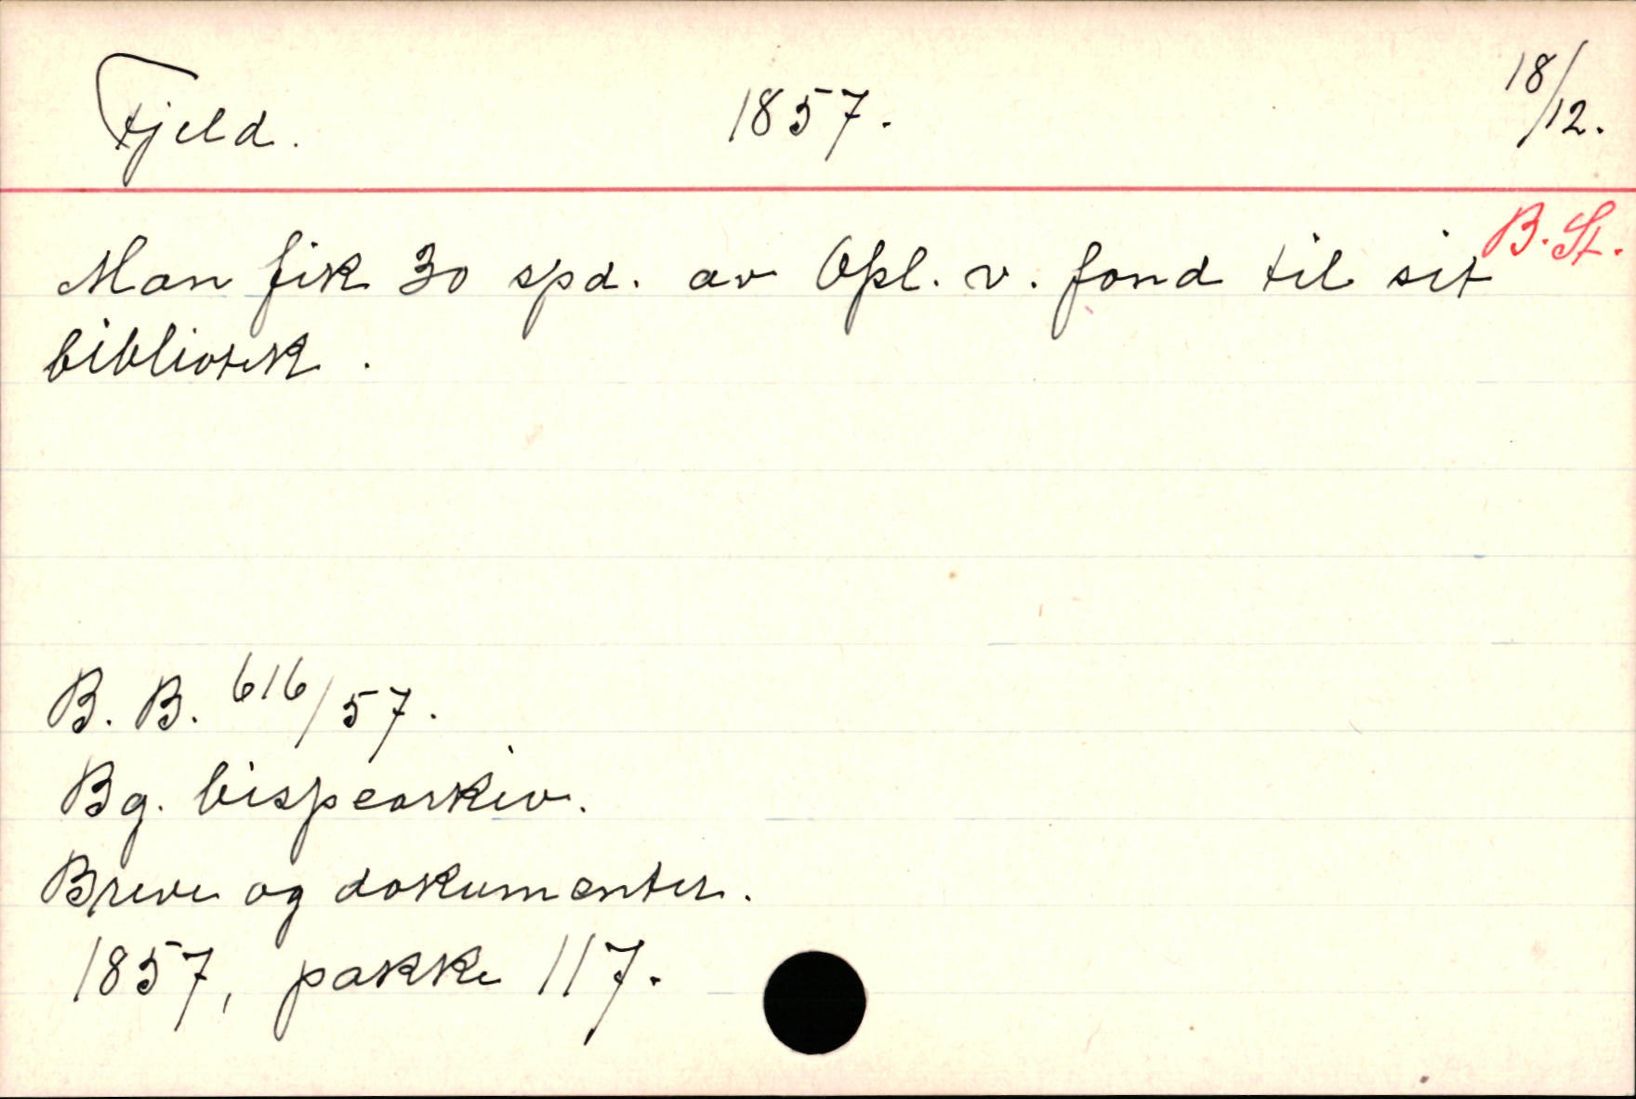 Fjeld. 1857. 18/12.
B. St.
Man fik 30 spd. av Opl. v. fond til sit
bibliotek.
B. B. 616/57.
Bg. bispearkiv.
Breve og dokumenter.
1857, pakke 117.